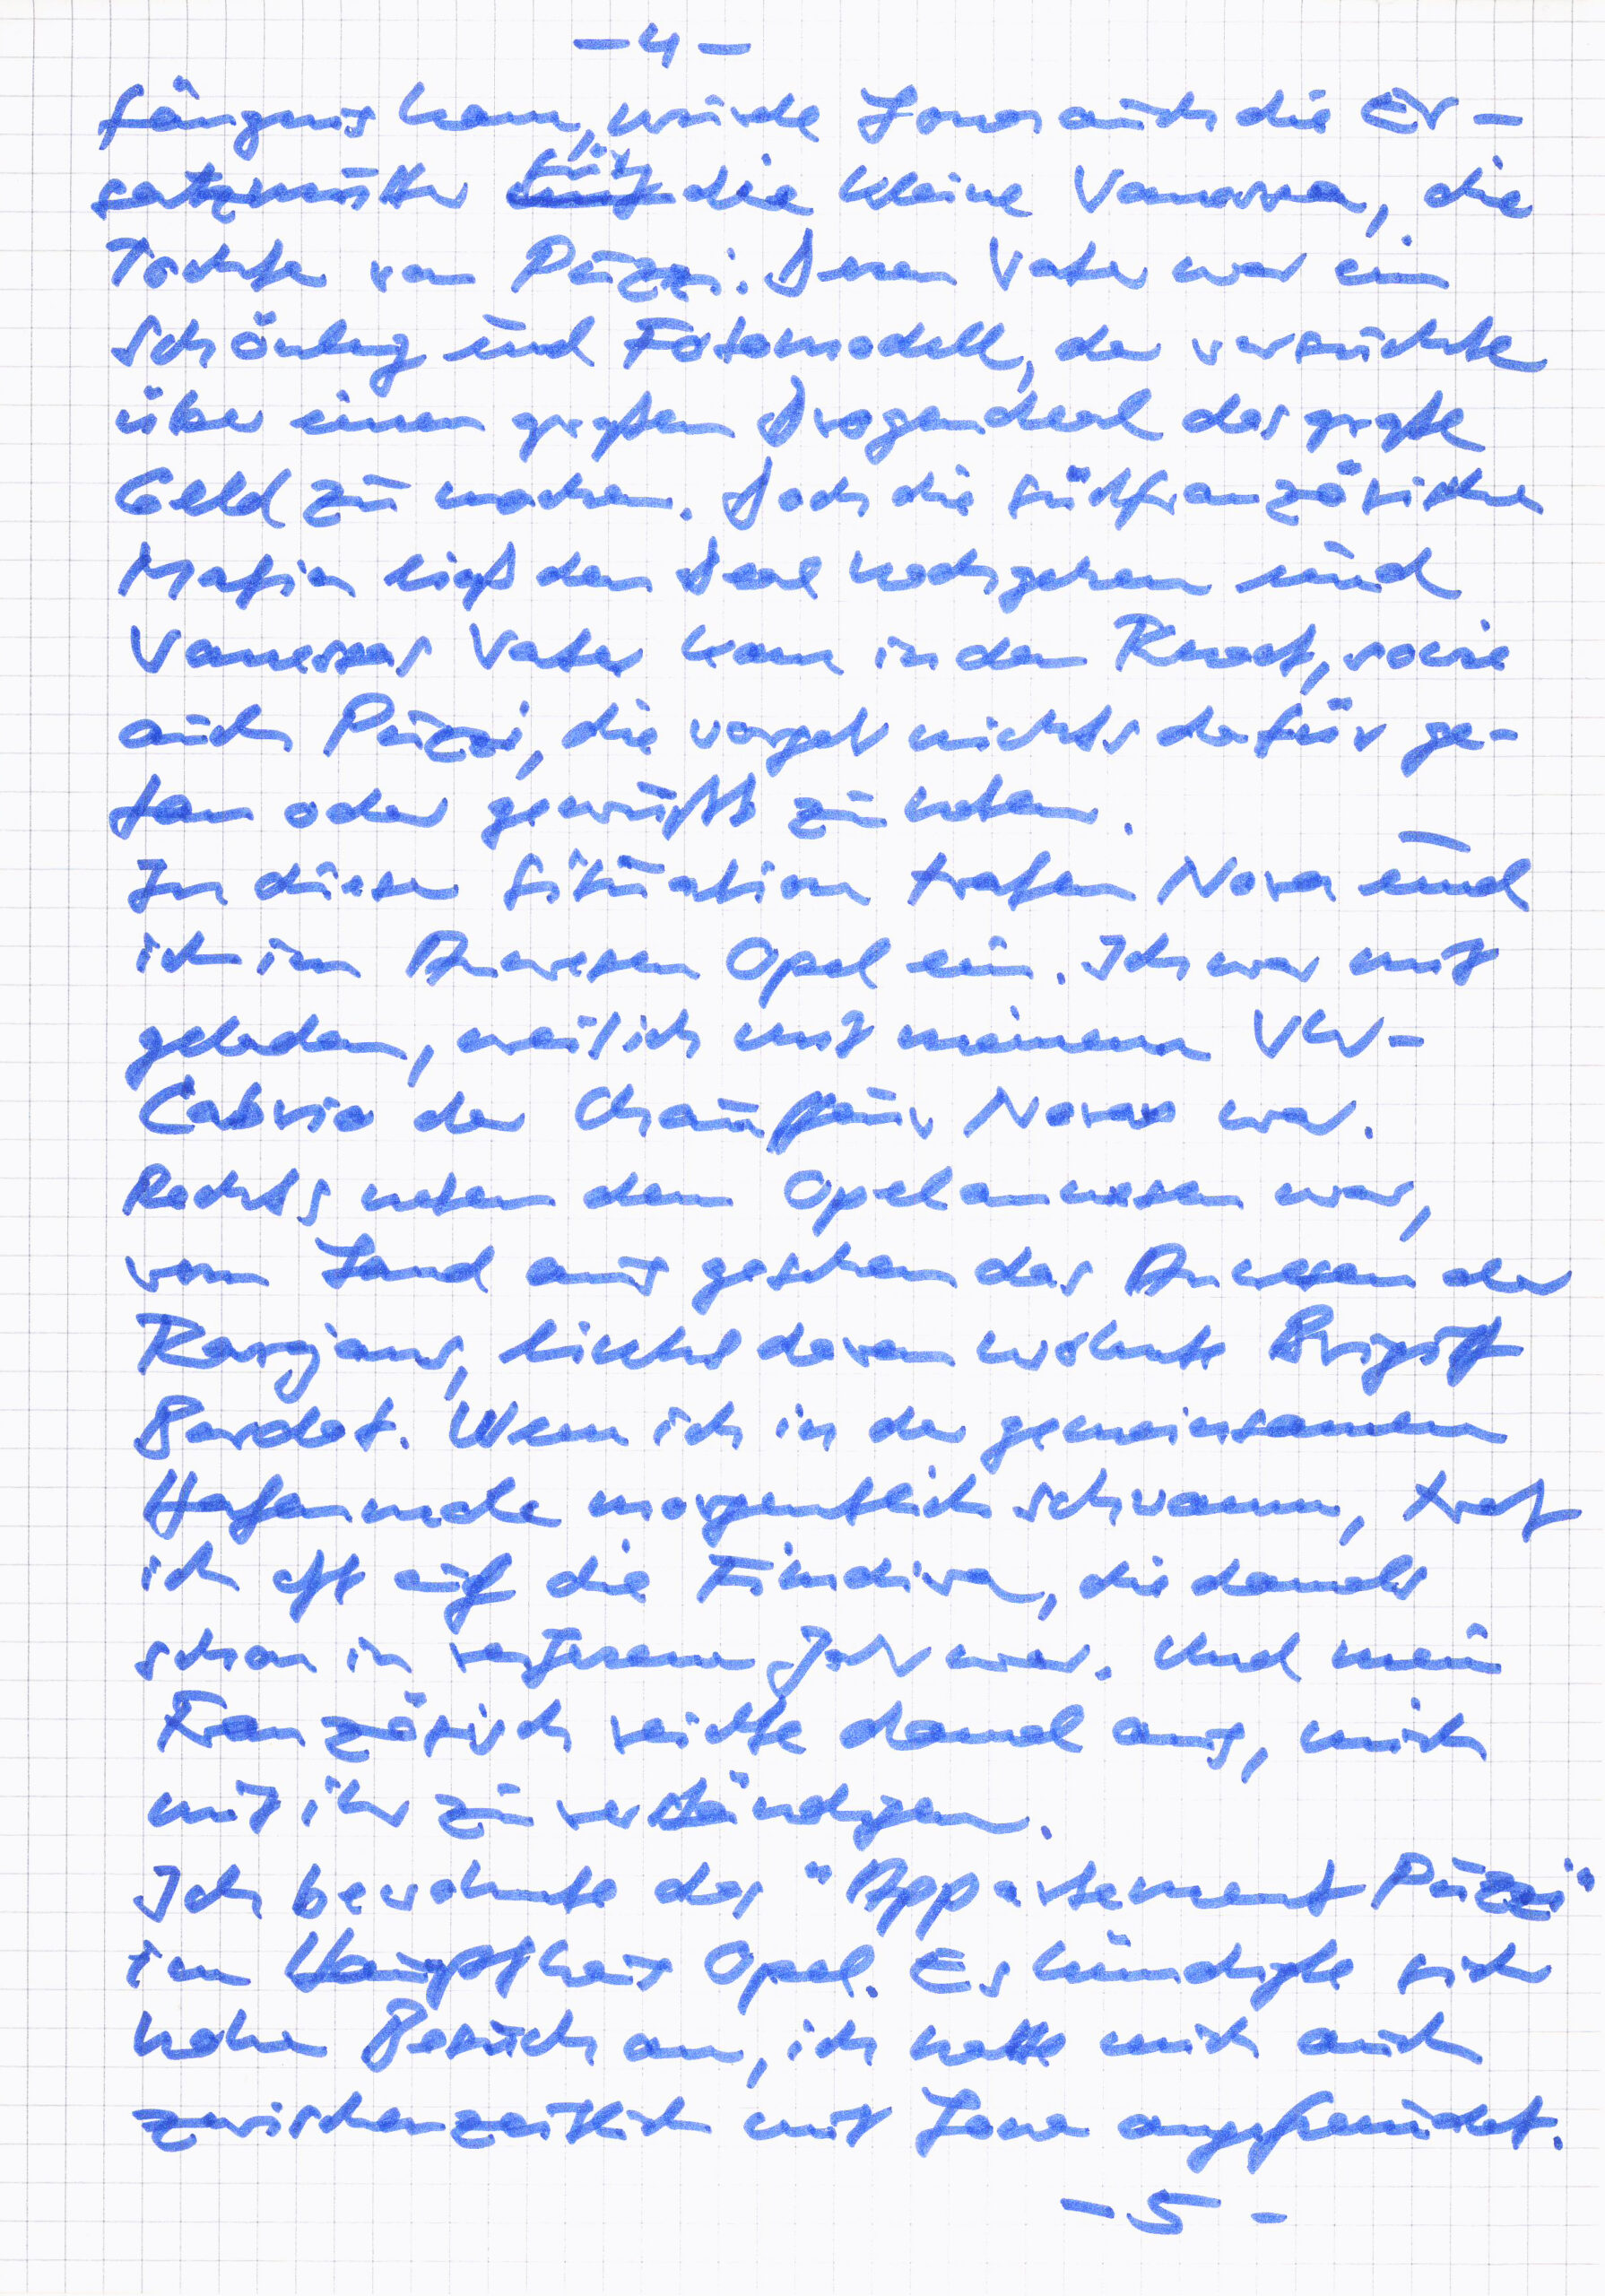 -4-
fängnis kam, wurde Lona auch die Er-
satzmutter für die kleine Vanessa, die
Tochter von Puzzi. Deren Vater war ein
Schönling und Fotomodell, der versuchte
über einen großen Drogendeal das große
Geld zu machen. Doch die südfranzösische
Mafia ließ den Deal hochgehen und
Vanessas Vater kam in den Knast, sowie
auch Puzzi, die vorgab nichts dafür ge-
tan oder gewußt zu haben.
In dieser Situation trafen Nora und
ich im Anwesen Opel ein. Ich war mit
geladen, weil ich mit meinem VW-
Cabrio der Chauffeur Noras war.
Rechts neben dem Opelanwesen war,
vom Land aus gesehen das Anwesen der
Karajans, links davon wohnte Brigitt
Bardot. Wenn ich in der gemeinsamen
Hafenmole morgentlich schwamm, traf
ich oft auf die Filmdiva, die damals
schon in reiferem Jahr war. Und mein
Französisch reichte damal aus, mich
mit ihr zu verständigen.
Ich bewohnte das "Appartement Puzzi"
im Haupthaus Opel. Es kündigte sich
hoher Besuch an, ich hatte mich auch
zwischenzeitlich mit Lona angefreundet.
-5-